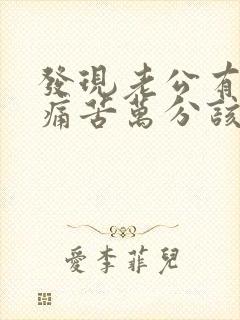 發現老公有
痛苦萬分該
愛李菲兒